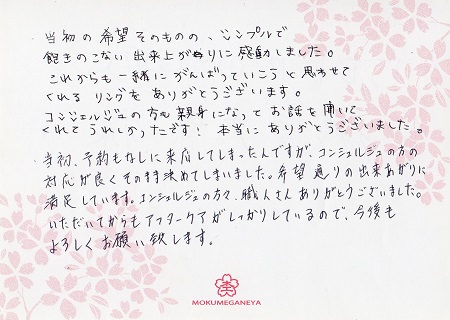 ・当初の希望そのものの、シンプルで
飽きのこない出来上がりに感動しました。
これからも一緒にがんばっていこうと思わせて
くれるリングをありがとうございます。
コンシェルジュの方も親身になってお話を聞いて
くれてうれしかったです！本当にありがとうございました。
・当初、予約もなしに来店してしまったんですが、コンシェルジュの方の
対応が良くそのまま決めてしまいました。希望通りの出来あがりに
満足しています。コンシェルジュの方々、職人さんありがとうございました。
いただいてからもアフターケアがしっかりしているので、今後も
よろしくお願い致します。
MOKUMEGANEYA